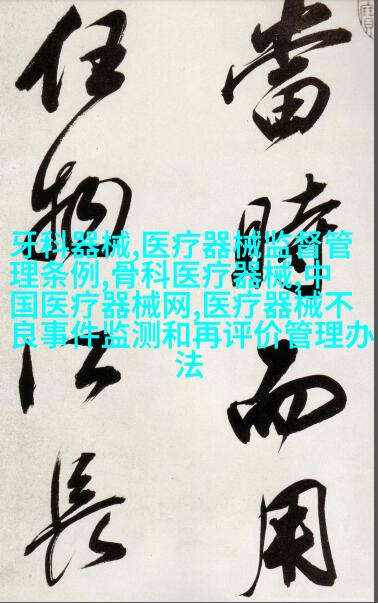 當時而用
任物長
牙科器械,医疗器械监督管
理条例,骨科医疗器械,中
国医疗器械网,医疗器械不
良事件监测和再评价管理办
法